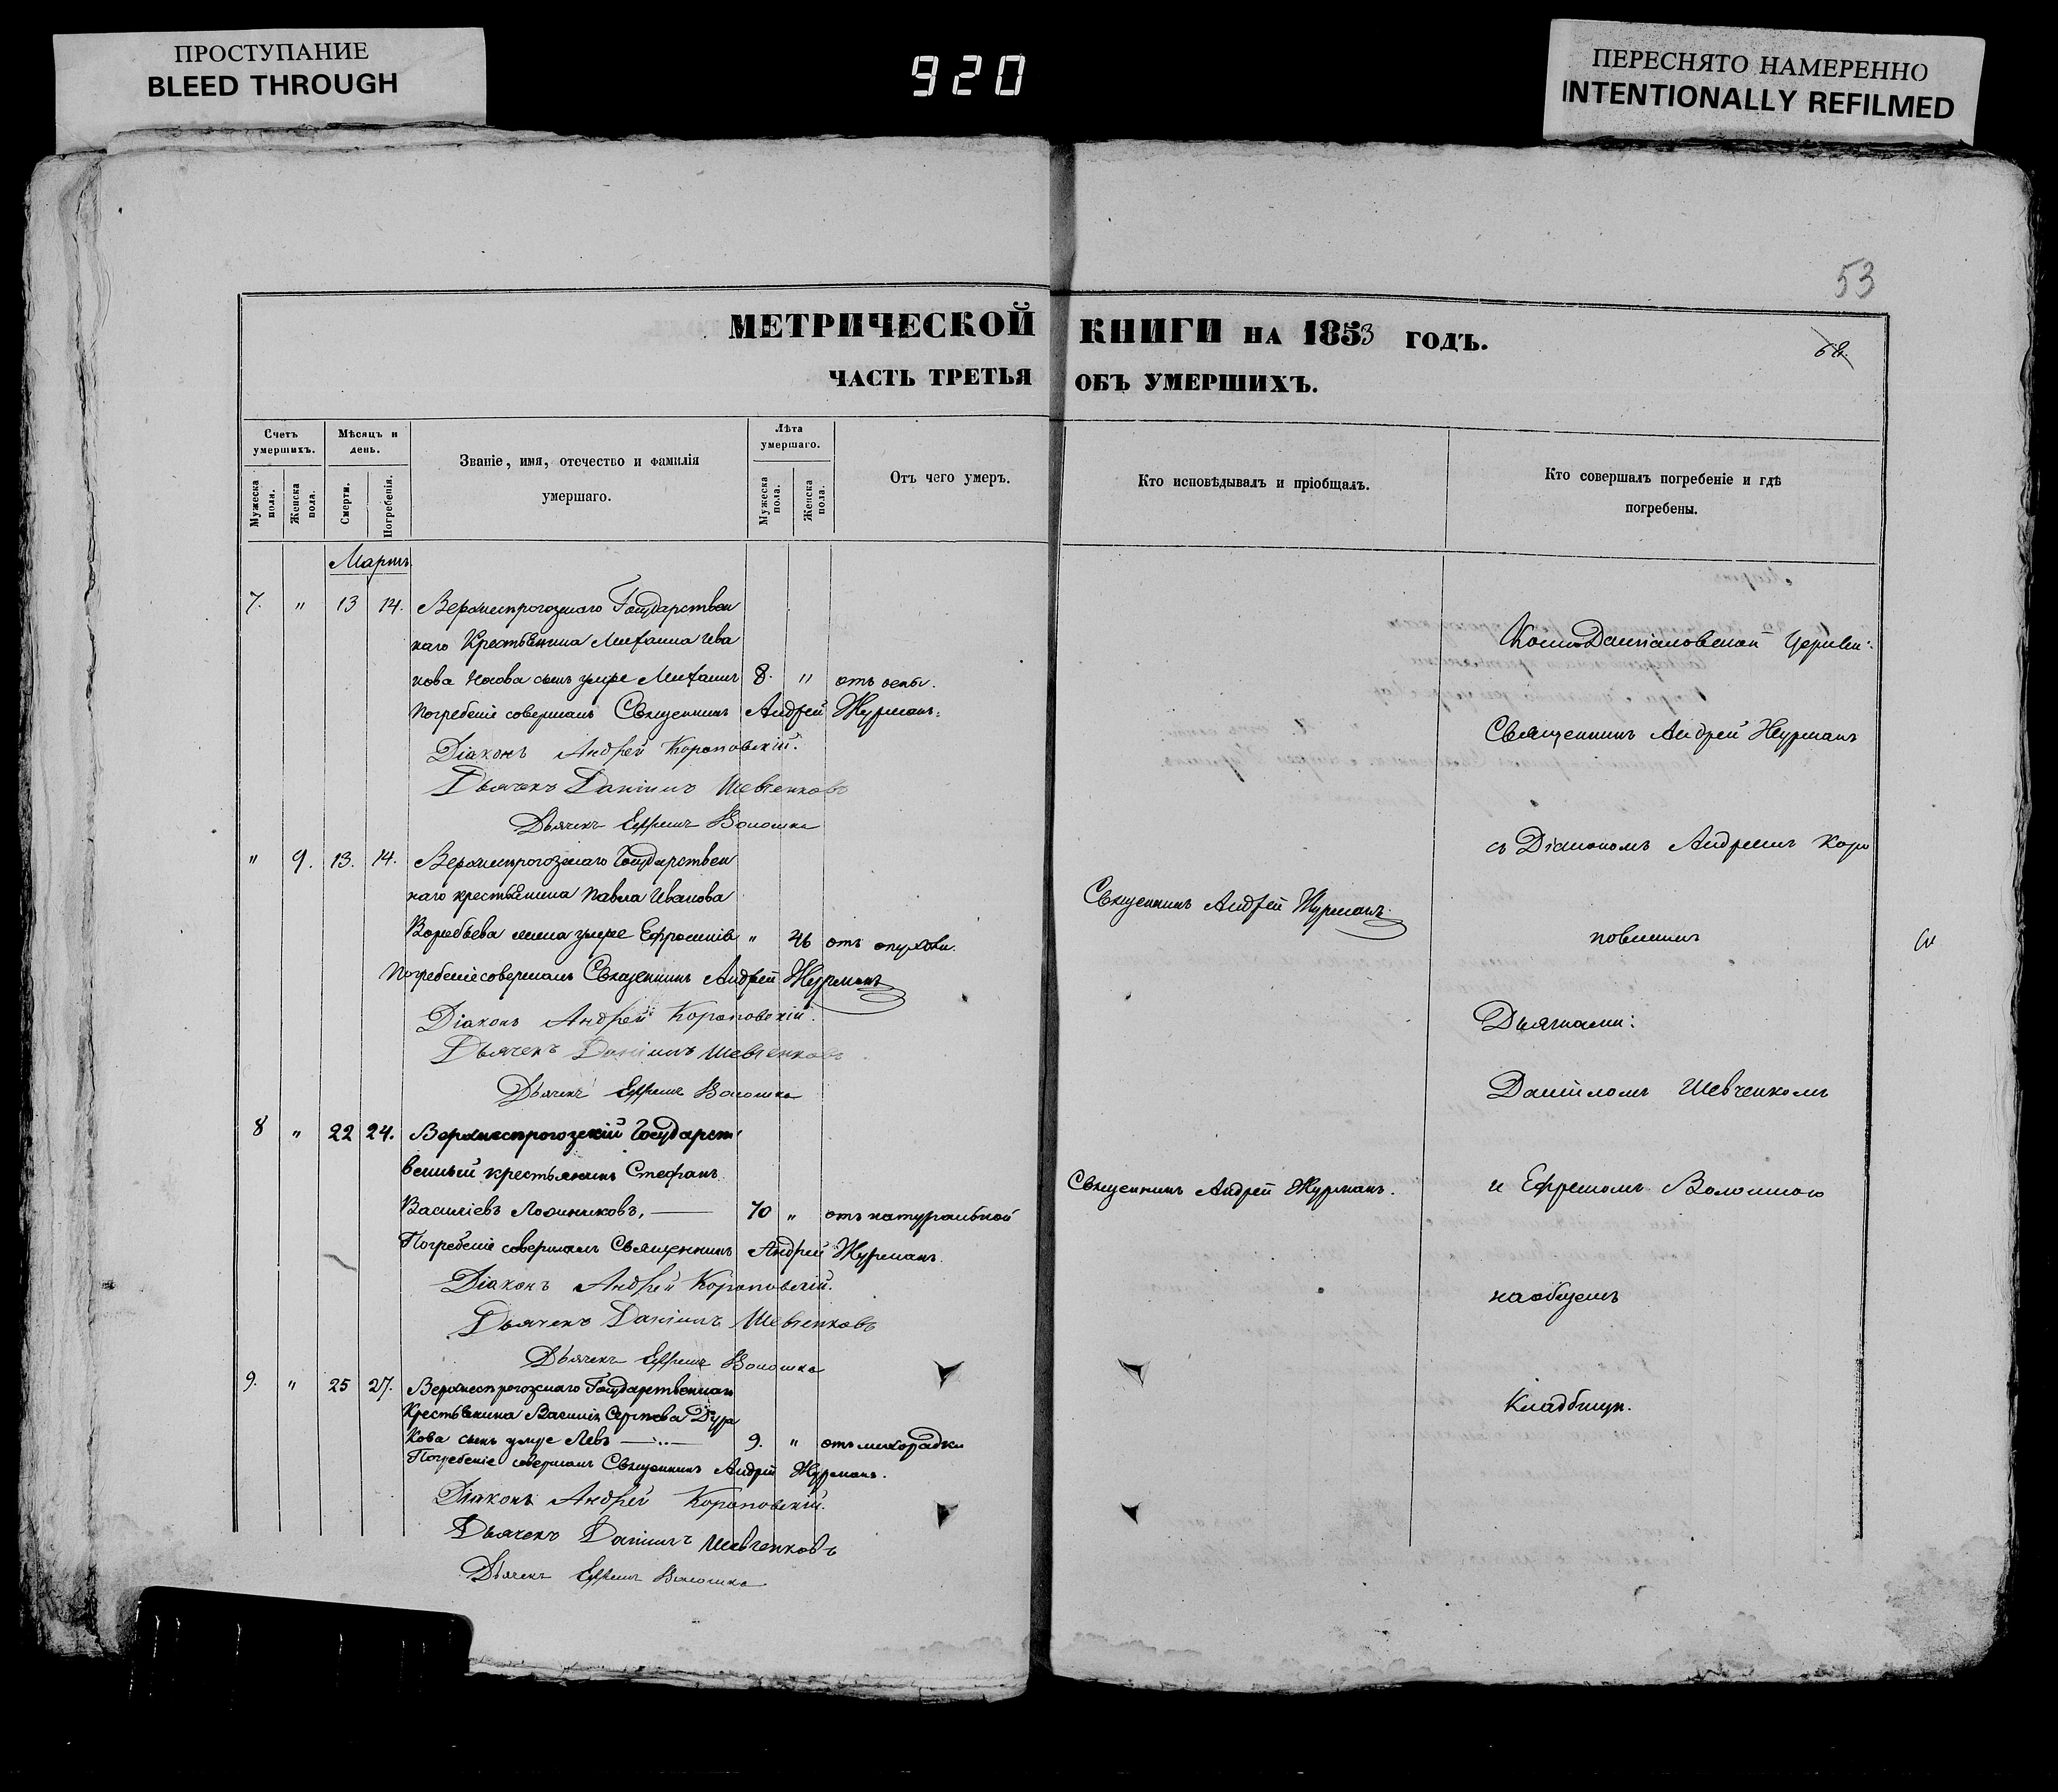 ПРОСТУПАНИЕ
BLEED THROUGH
920
ПЕРЕСНЯТО НАМЕРЕННО
INTENTIONALLY REFILMED
53
68.
МЕТРИЧЕСКОЙ КНИГИ НА 1853 ГОДЪ.
ЧАСТЬ ТРЕТЬЯ ОБЪ УМЕРШИХЪ.
Счетъ умершихъ.
Мужеска пола.
Женска пола.
Мѣсяцъ и день.
Смерти.
Погребенія.
Званіе, имя, отечество и фамилія умершаго.
Лѣта умершаго.
Мужеска пола.
Женска пола.
Отъ чего умеръ.
Кто исповѣдывалъ и пріобщалъ.
Кто совершалъ погребеніе и гдѣ погребены.
Мартъ
7. " 13 14. Верхнепрогозскаго Государствен
наго Крестьянина Михаила Ива
нова сынъ умре Михаилъ 8. " отъ оспы.
Погребеніе совершалъ Священникъ Андрей Журманъ.
Діаконъ Андрей Короповскій.
Дьячекъ Даніилъ Шевченковъ
Дьячекъ Ефремъ Волошка
" 9. 13. 14. Верхнепрогозскаго Государствен
наго крестьянина Павла Иванова
Воробьева жена умре Ефросинія " 46 отъ опухоли.
Священникъ Андрей Журманъ.
Погребеніе совершалъ Священникъ Андрей Журманъ
Діаконъ Андрей Короповскій.
Дьячекъ Даніилъ Шевченковъ
Дьячекъ Ефремъ Волошка
8 " 22 24. Верхнепрогозскій Государст
венный крестьянинъ Стефанъ
Василіевъ 70 " отъ натуральной
Священникъ Андрей Журманъ.
Погребеніе совершалъ Священникъ Андрей Журманъ.
Діаконъ Андрей Короповскій.
Дьячекъ Даніилъ Шевченковъ
Дьячекъ Ефремъ Волошка
9. " 25 27. Верхнепрогозскаго Государственнаго
Крестьянина Василія Сергѣева Дура
кова сынъ умре Левъ 9. " отъ лихорадки
Погребеніе совершалъ Священникъ Андрей Журманъ.
Діаконъ Андрей Короповскій.
Дьячекъ Даніилъ Шевченковъ
Дьячекъ Ефремъ Волошка
Космо Даміановской Церкви:
Священникъ Андрей Журманъ
съ Діакономъ Андреемъ Коро
повскимъ
Дьячками:
Даніиломъ Шевченкомъ
и Ефремомъ Волошкою
на общемъ
Кладбищѣ.